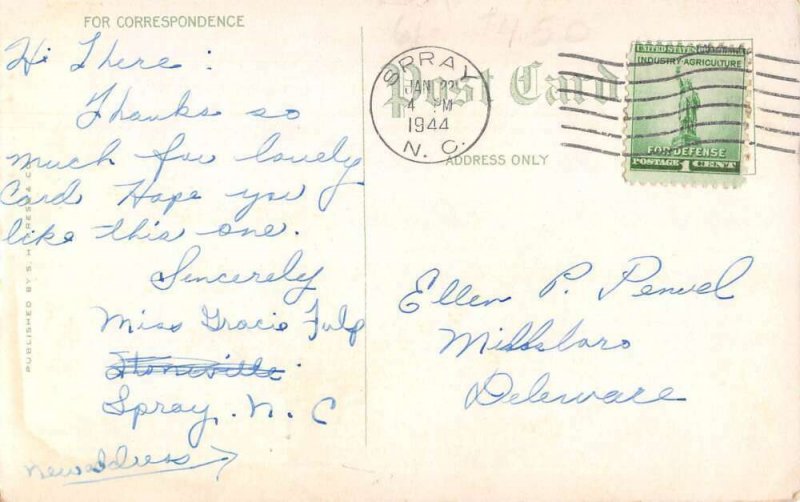 FOR CORRESPONDENCE
Hi There:
Thanks so
much for lovely
Card Hope you
like this one.
Sincerely
Miss Gracie Fulp
Stoneville
Spray, N. C
new address
PUBLISHED BY S. H.
Post Card
ADDRESS ONLY
SPRAY
JAN 22
4 PM
1944
N. C.
UNITED STATES
INDUSTRY·AGRICULTURE
FOR DEFENSE
POSTAGE 1 CENT
Ellen P. Penuel
Millsboro
Deleware
$4.50